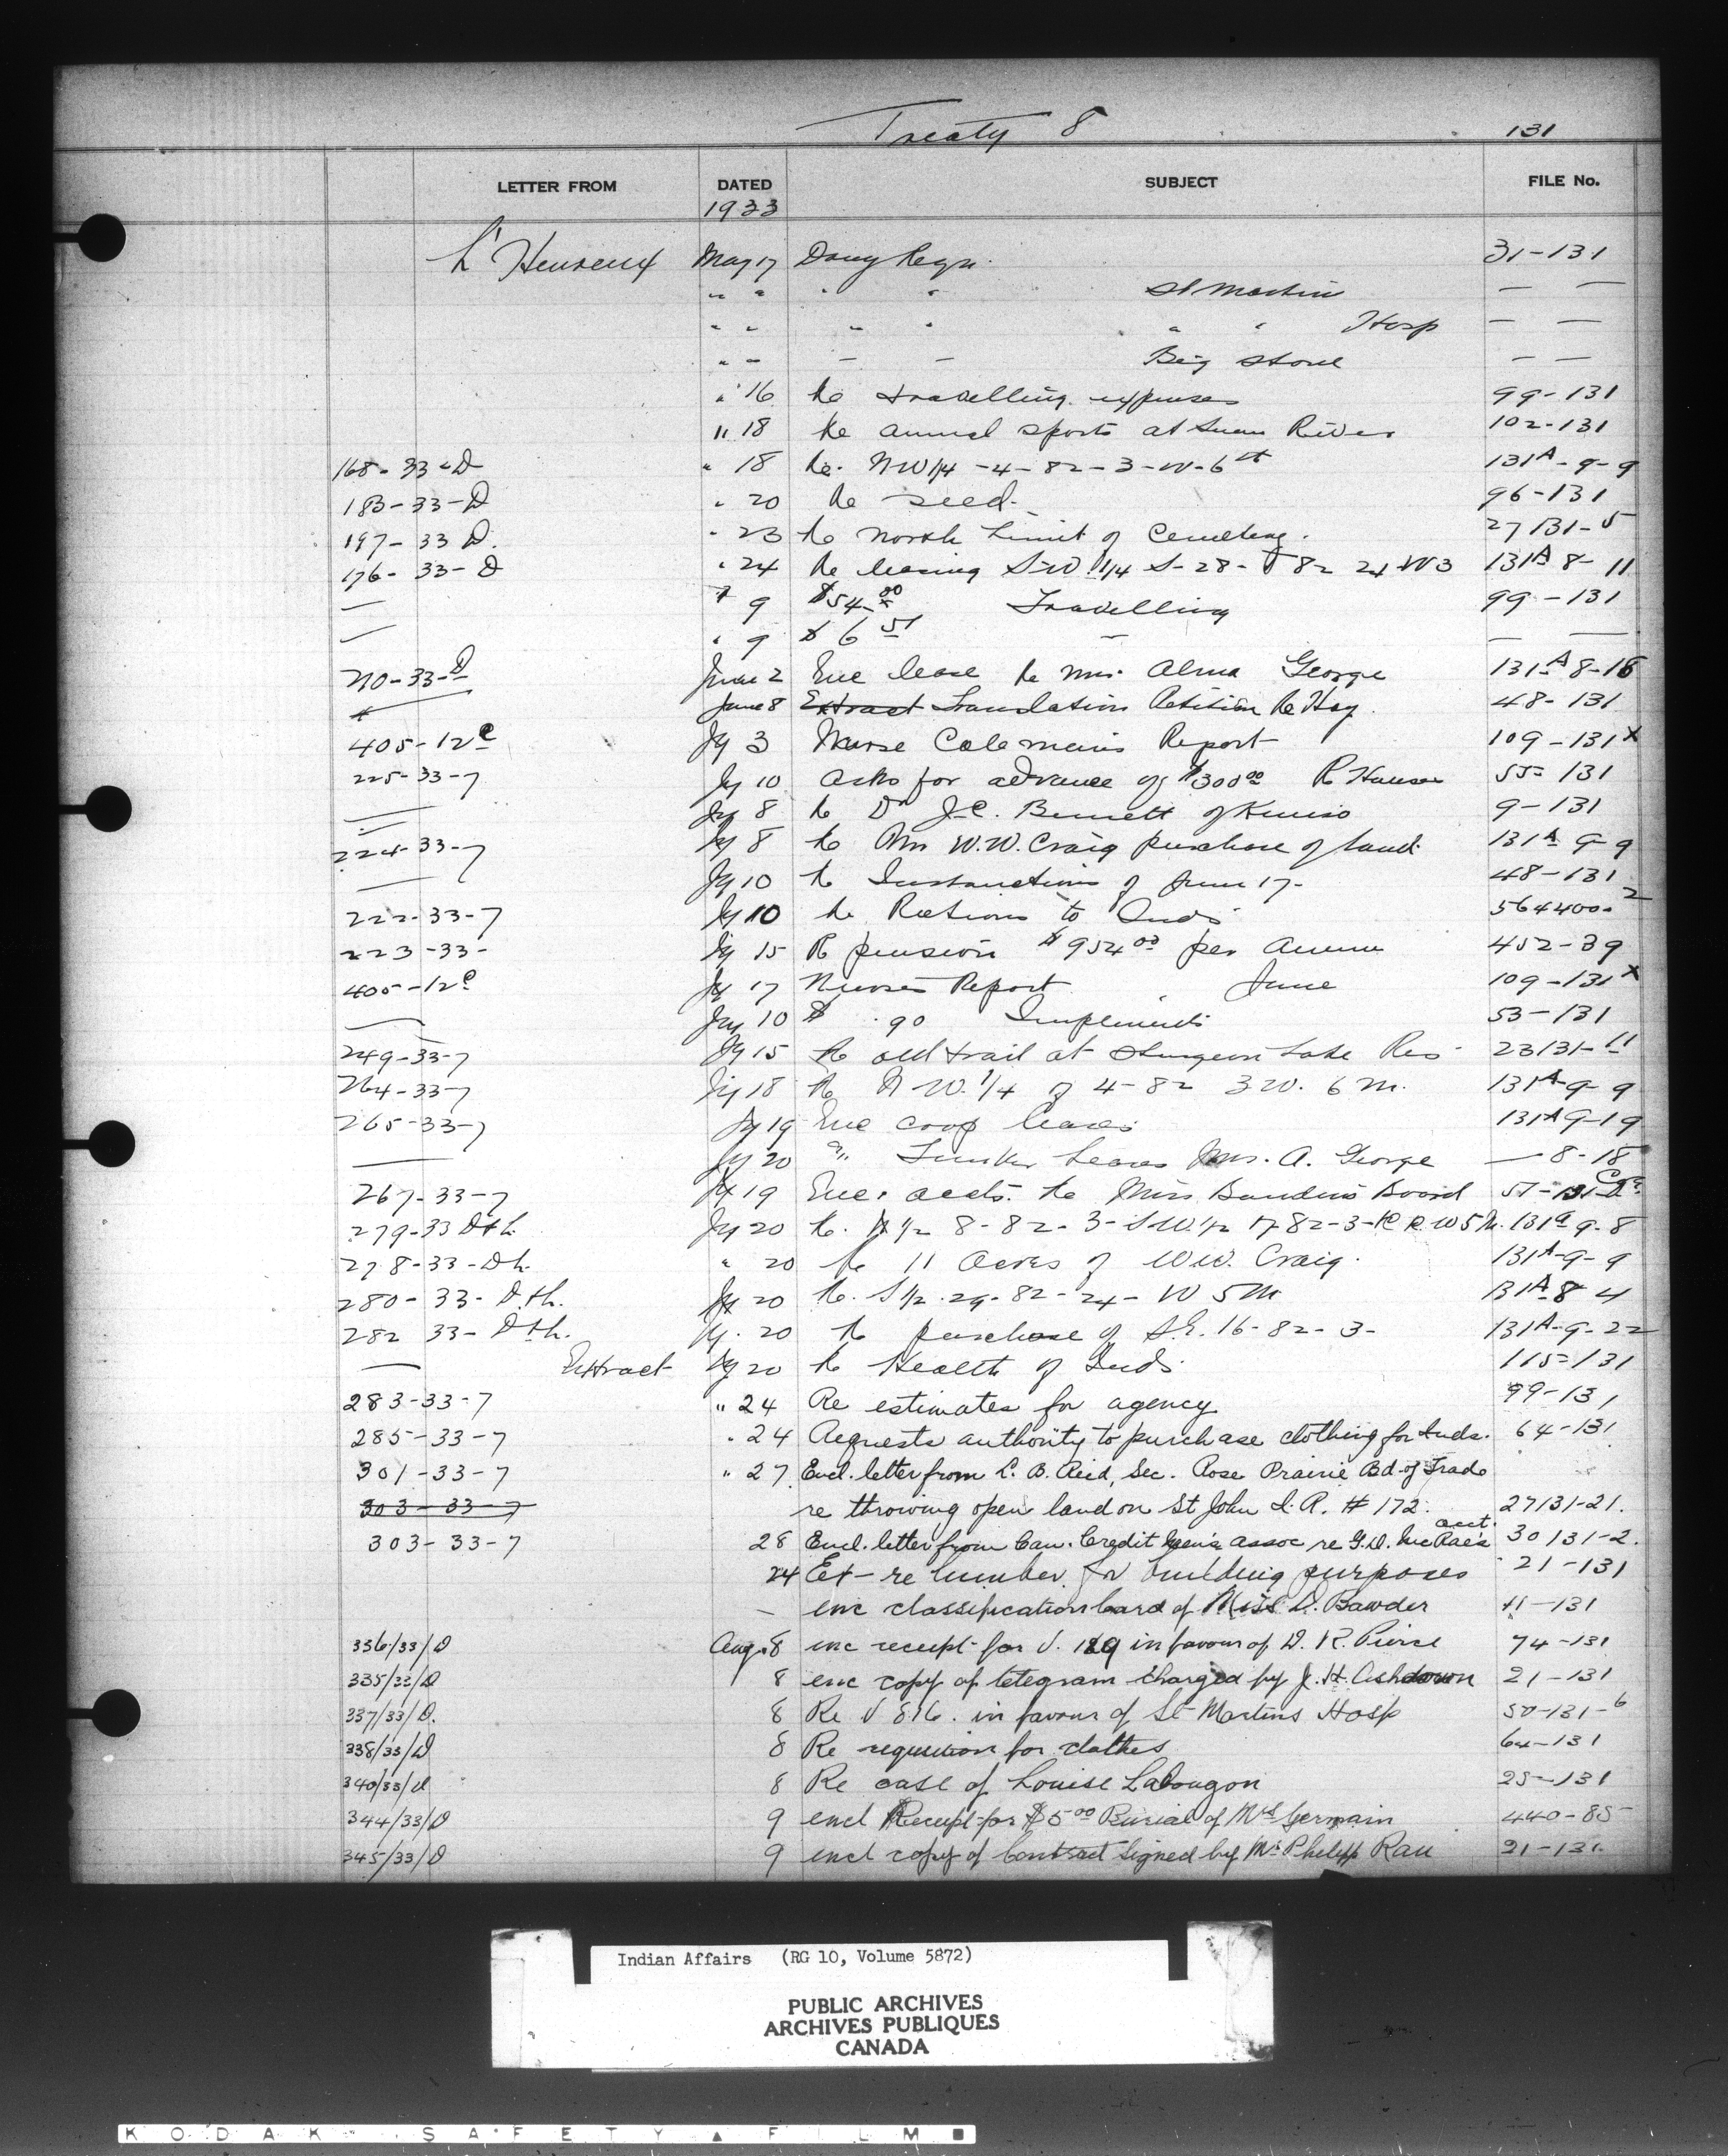 Treaty 8 131
LETTER FROM DATED SUBJECT FILE No.
1933
L'Heureux May 17 Drug Reqn. 31-131
" " " " St Martin — —
" " " " " " Hosp — —
" — — — Big Stone — —
" 16 Re travelling expenses 99-131
" 18 Re annual sports at Swan River 102-131
168-33-D " 18 Re. NW 1/4 -4-82-3-W-6th 131A-9-9
183-33-D " 20 Re seed. 96-131
197-33 D. " 23 Re North Limit of Cemetery. 27131-5
176-33-D " 24 Re leasing S-W 1/4 S-28- T 82 24 W 3 131A 8-11
— " 9 $54.00 Travelling 99-131
— " 9 $ 6 51 — — —
210-33-D June 2 Enc lease Re Mrs. Alma George 131A 8-18
June 8 Extract Translation Petition Re Hay. 48-131
405-12C Jy 3 Nurse Colemans Report 109-131X
225-33-7 Jy 10 Asks for advance of $300.00 R House 55-131
— Jy 8 Re Dr J.C. Bennett of Kinuso 9-131
224-33-7 Jy 8 Re Mr W.W. Craig purchase of land. 131A 9-9
— Jy 10 Re Instructions of June 17- 48-131
222-33-7 Jy 10 Re Rations to Inds 564400-2
223-33- Jy 15 R pension $954.00 per Annum 452-39
405-12C Jy 17 Nurses Report June 109-131X
— Jy 10 $ .90 Implements 53-131
249-33-7 Jy 15 Re old trail at Sturgeon Lake Res 23131-11
264-33-7 Jy 18 Re N-W. 1/4 of 4-82 3 W. 6 M. 131A-9-9
265-33-7 Jy 19 Enc crop leases 131A 9-19
— Jy 20 " Leases Mrs. A. George — 8-18
267-33-7 Jy 19 Enc. accts. Re Miss Board
279-33 Dth. Jy 20 Re. N 1/2 8-82-3-S.W. 1/2 17-82-3- W 5 M. 131A 9-8
278-33-Dh. " 20 Re 11 Acres of W.W. Craig. 131A-9-9
280-33-Dth. Jy 20 Re. S 1/2. 29-82-24-W 5 M 131A-8 4
282 33-Dth. Jy. 20 Re purchase of S.E. 16-82-3- 131A-9-22
— Extract Jy 20 Re Health of Inds. 115-131
283-33-7 " 24 Re estimates for agency 99-131
285-33-7 " 24 Requests authority to purchase clothing for Inds. 64-131
301-33-7 " 27 Encl. letter from L. B. Reid, Sec. Rose Prairie Bd. of Trade
303-33-7 re throwing open land on St John I. R. # 172. 27131-21.
303-33-7 28 Encl. letter from Can. Credit Men's Assoc re G.D. McRae's acct. 30131-2.
24 Ext- re lumber for building purposes 21-131
— enc classification card of Miss D. Bawder 11-131
336/33/D Aug. 8 enc receipt for V. 189 in favour of D. R. Pierce 74-131
335/33/D 8 enc copy of telegram charged by J. H. Ashdown 21-131
337/33/D. 8 Re V 816. in favour of St Martins Hosp 50-131-6
338/33/D 8 Re requisition for clothes 64-131
340/33/D 8 Re case of Louise 25-131
344/33/D 9 encl Receipt for $5.00 Burial of Mrs Germain 440-85
345/33/D 9 encl copy of Contract signed by Mr Philipp Rau 21-131.
Indian Affairs (RG 10, Volume 5872)
PUBLIC ARCHIVES
ARCHIVES PUBLIQUES
CANADA
KODAK SAFETY FILM